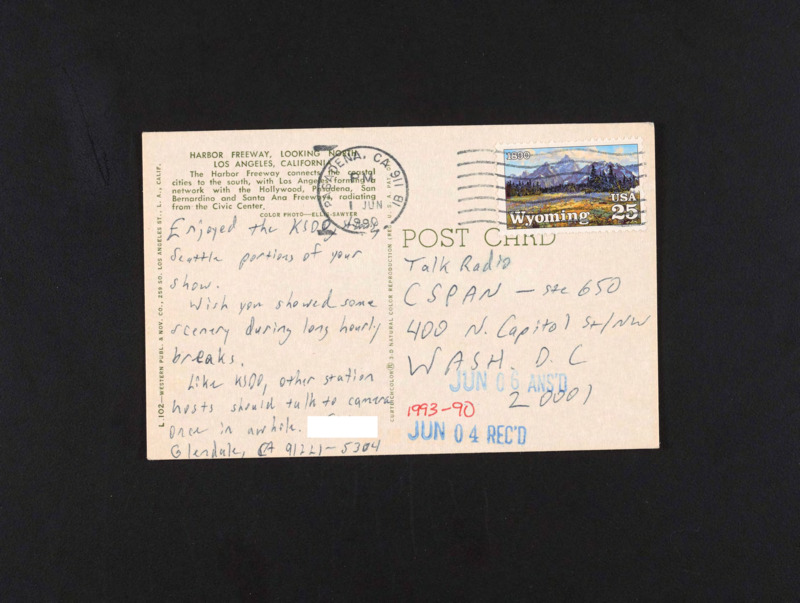 HARBOR FREEWAY, LOOKING NORTH,
LOS ANGELES, CALIFORNIA
The Harbor Freeway connects the coastal
cities to the south, with Los Angeles forming a
network with the Hollywood, Pasadena, San
Bernardino and Santa Ana Freeways, radiating
from the Civic Center.
COLOR PHOTO—ELLIS-SAWYER
Enjoyed the KSDO
Seattle portions of your
show.
Wish you showed some
scenery during long hourly
breaks.
Like KSDO, other station
hosts should talk to camera
once in awhile.
Glendale, CA 91221-5304
L.102—WESTERN PUBL. & NOV. CO., 259 SO. LOS ANGELES ST., L. A., CALIF.
PASADENA, CA 911
PM
1 JUN
1990
1890
Wyoming
USA
25
POST CARD
Talk Radio
CSPAN - ste 650
400 N. Capitol St/NW
WASH. D.C
20001
JUN 06 ANS'D
1993-90
JUN 04 REC'D
NATURAL COLOR REPRODUCTION